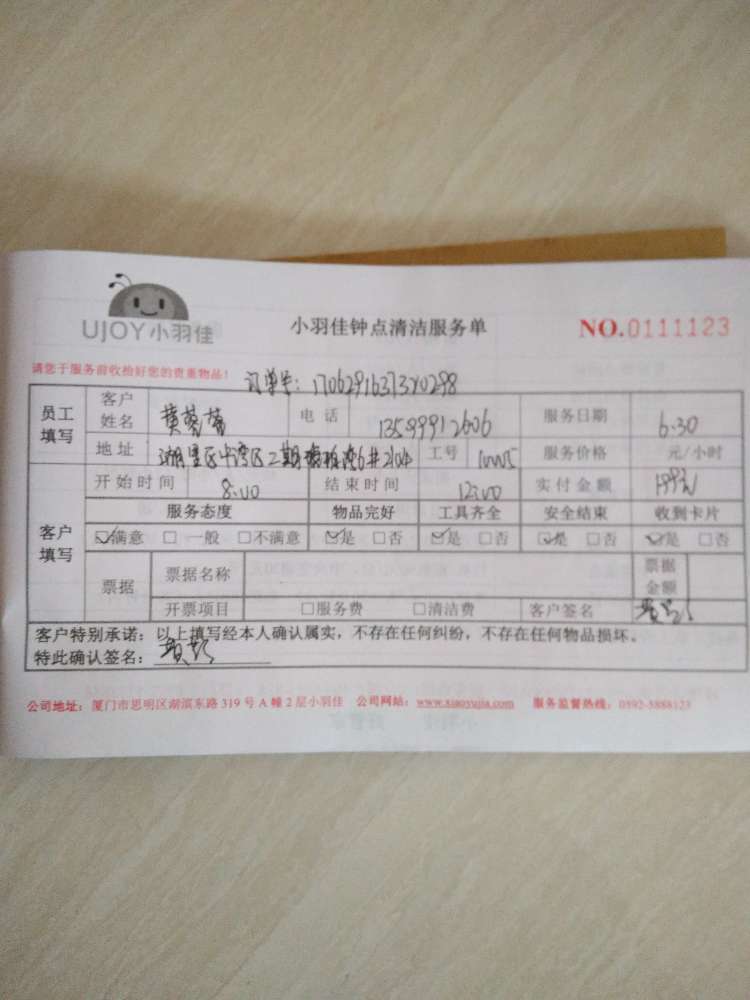 UJOY小羽佳
小羽佳钟点清洁服务单
NO.0111123
请您于服务前收检好您的贵重物品!
订单号:
员工填写 客户姓名 电话 13599912606 服务日期 6.30
地址 湖里区 二期 6# 2104 工号 服务价格 元/小时
客户填写 开始时间 8:00 结束时间 12:00 实付金额
服务态度 物品完好 工具齐全 安全结束 收到卡片
☑满意 □一般 □不满意 ☑是 □否 ☑是 □否 ☑是 □否 ☑是 □否
票据 票据名称 票据金额
开票项目 □服务费 □清洁费 客户签名
客户特别承诺：以上填写经本人确认属实，不存在任何纠纷，不存在任何物品损坏。
特此确认签名：
公司地址：厦门市思明区湖滨东路 319 号 A 幢 2 层小羽佳 公司网站：www.xiaoyujia.com 服务监督热线：0592-5888123